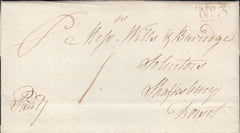 No. 3
Messrs. Wills & Burridge
Solicitors
Shaftesbury
Dorset